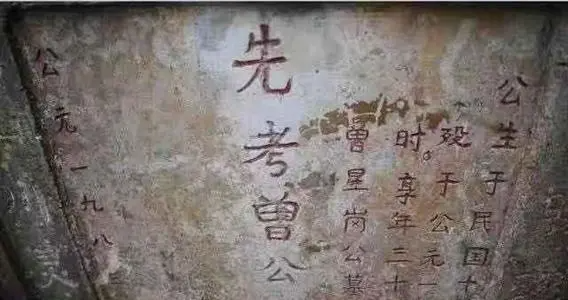 公生于民国十
殁于公元一
时。享年三十
曾星岗公墓
先考曾公
公元一九八